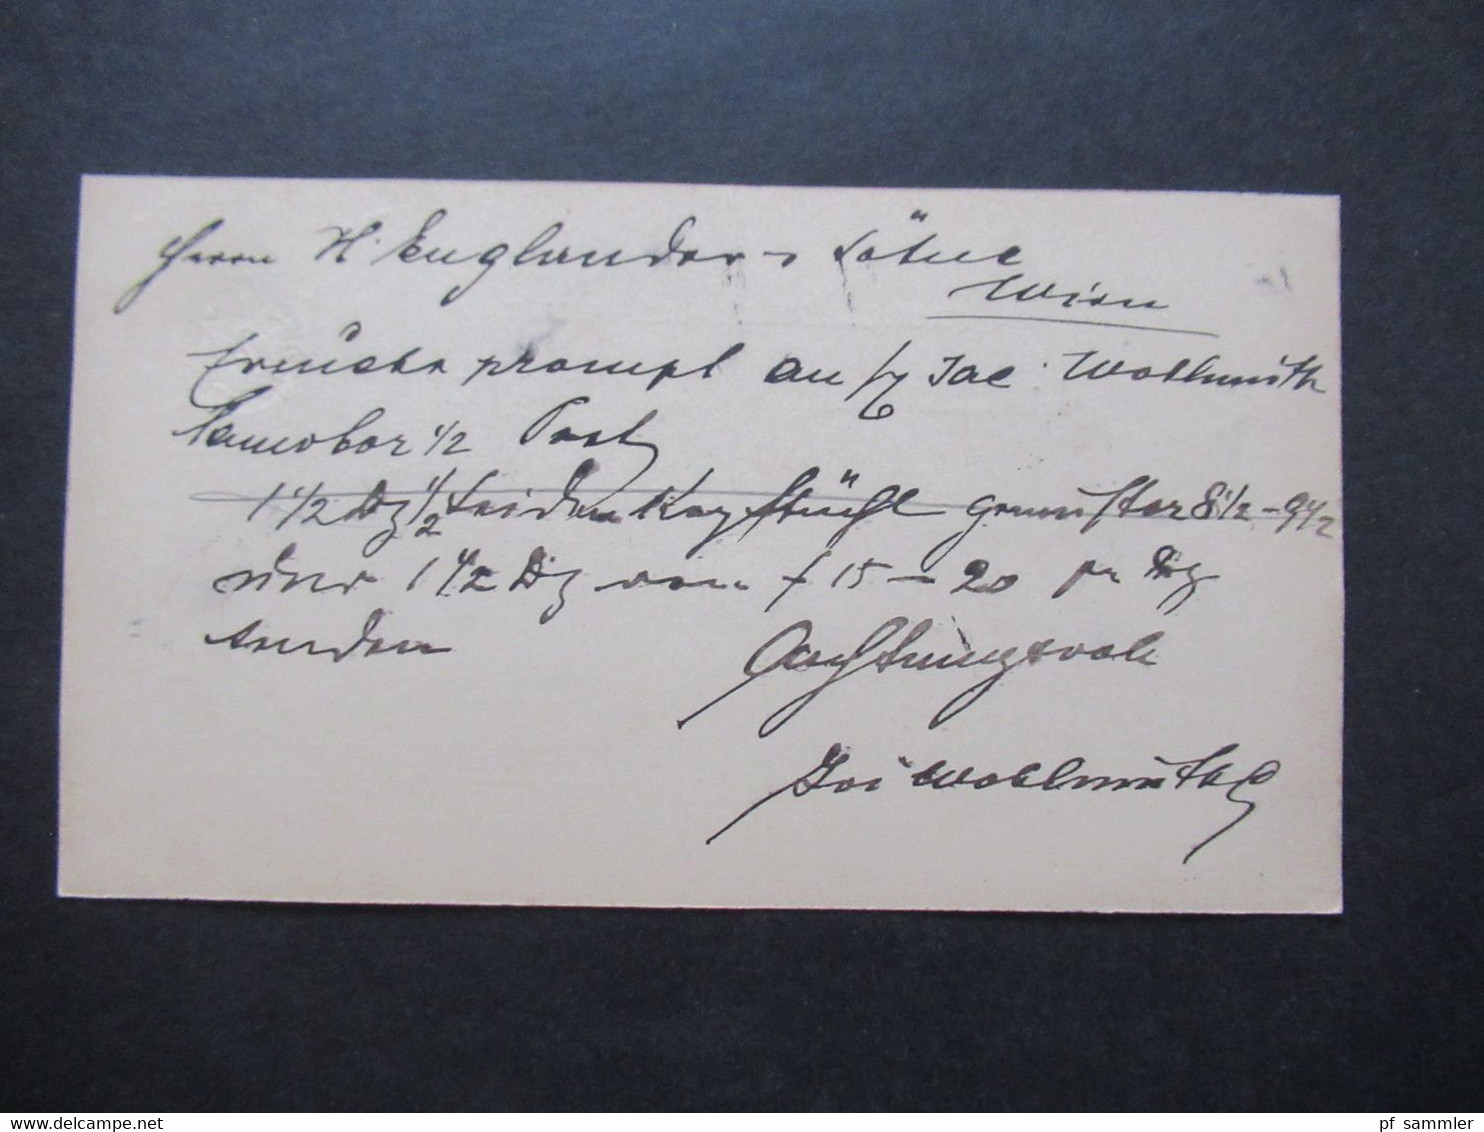 Herrn H. Englander's Söhne
Wien
Ersuche prompt an Hr. Jac. Wollmuth
Samobor 1/2 Post
1 1/2 Dz 1/2 Seiden Kopftüchl gemustert 8 1/2 - 9 1/2
und 1 1/2 Dz von f 15 - 20 pr Dz
senden
Achtungsvoll
Wollmuth
www.delcampe.net
pf_sammler